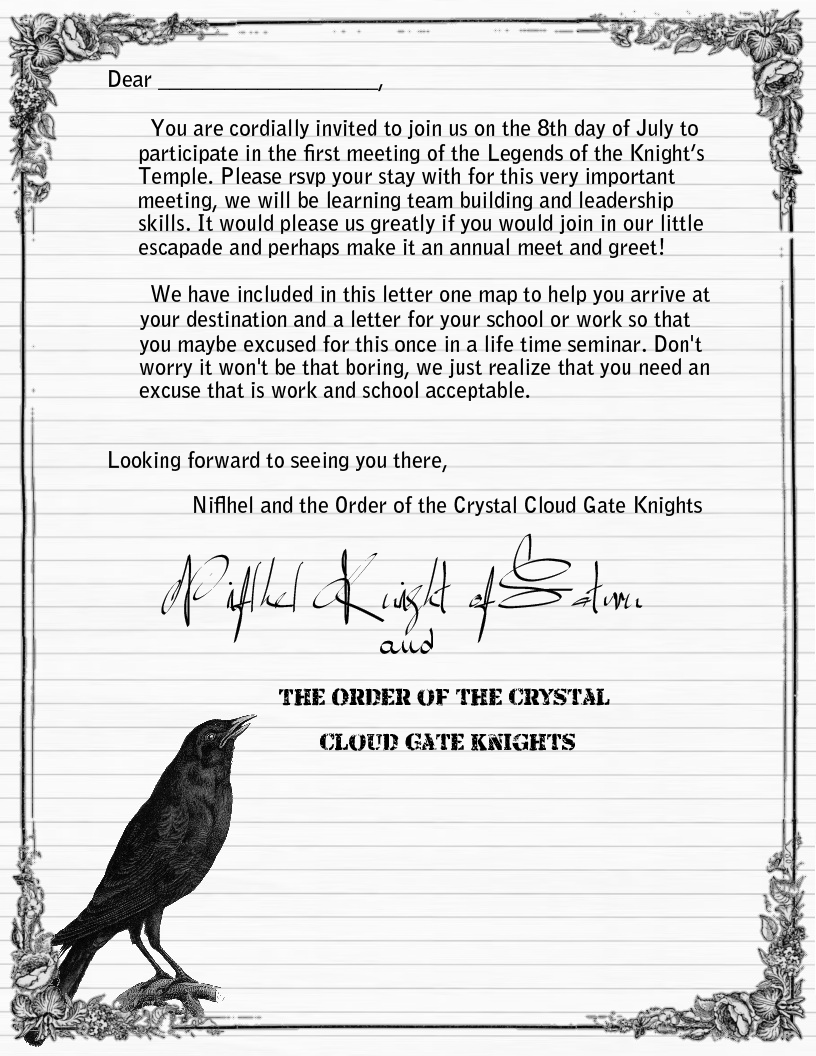 Dear ____________________,
You are cordially invited to join us on the 8th day of July to
participate in the first meeting of the Legends of the Knight's
Temple. Please rsvp your stay with for this very important
meeting, we will be learning team building and leadership
skills. It would please us greatly if you would join in our little
escapade and perhaps make it an annual meet and greet!
We have included in this letter one map to help you arrive at
your destination and a letter for your school or work so that
you maybe excused for this once in a life time seminar. Don't
worry it won't be that boring, we just realize that you need an
excuse that is work and school acceptable.
Looking forward to seeing you there,
Niflhel and the Order of the Crystal Cloud Gate Knights
Niflhel Knight of Saturn
and
THE ORDER OF THE CRYSTAL
CLOUD GATE KNIGHTS